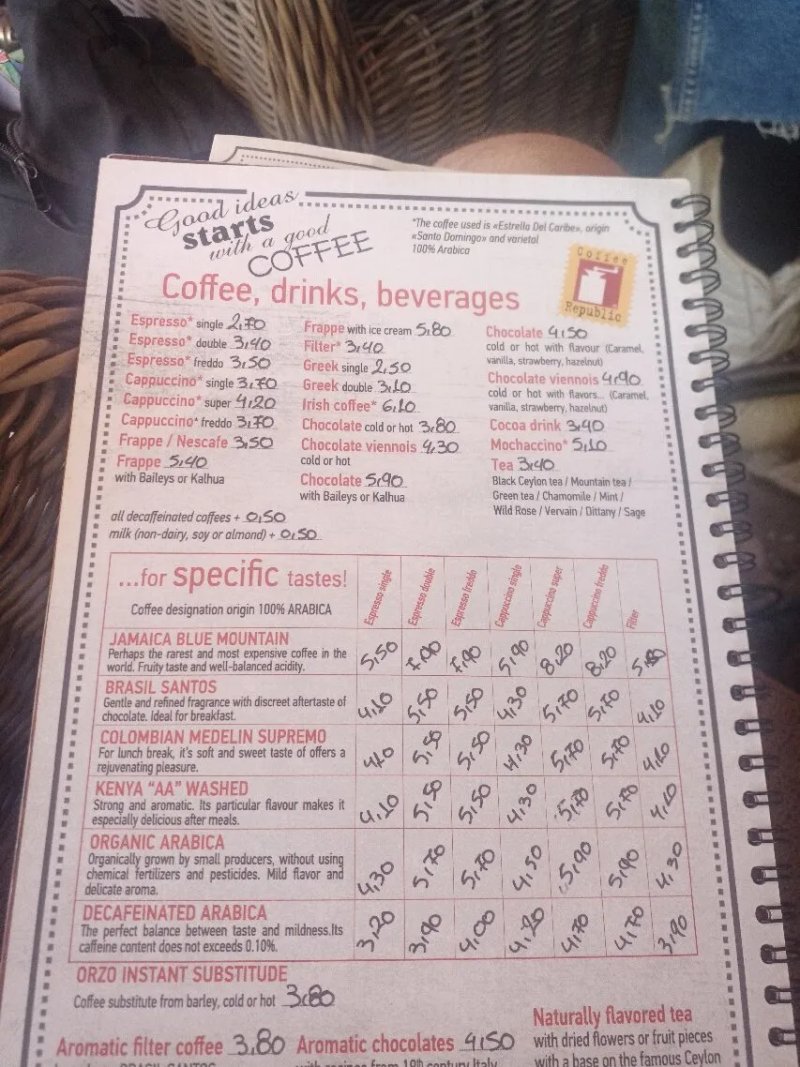 Good ideas
starts
with a good
COFFEE
*The coffee used is «Estrella Del Caribe», origin
«Santo Domingo» and varietal
100% Arabica
Coffee
Republic
Coffee, drinks, beverages
Espresso* single 2,70
Espresso* double 3,40
Espresso* freddo 3,50
Cappuccino* single 3,70
Cappuccino* super 4,20
Cappuccino* freddo 3,70
Frappe / Nescafe 3,50
Frappe 5,40
with Baileys or Kalhua
Frappe with ice cream 5,80
Filter* 3,40
Greek single 2,50
Greek double 3,10
Irish coffee* 6,10
Chocolate cold or hot 3,80
Chocolate viennois 4,30
cold or hot
Chocolate 5,90
with Baileys or Kalhua
Chocolate 4,50
cold or hot with flavour (Caramel,
vanilla, strawberry, hazelnut)
Chocolate viennois 4,90
cold or hot with flavors... (Caramel,
vanilla, strawberry, hazelnut)
Cocoa drink 3,40
Mochaccino* 5,10
Tea 3,40
Black Ceylon tea / Mountain tea /
Green tea / Chamomile / Mint /
Wild Rose / Vervain / Dittany / Sage
all decaffeinated coffees + 0,50
milk (non-dairy, soy or almond) + 0,50
...for specific tastes!
Coffee designation origin 100% ARABICA
Espresso single
Espresso double
Espresso freddo
Cappuccino single
Cappuccino super
Cappuccino freddo
Filter
JAMAICA BLUE MOUNTAIN
Perhaps the rarest and most expensive coffee in the
world. Fruity taste and well-balanced acidity.
5,50 7,90 7,90 5,90 8,20 8,20
BRASIL SANTOS
Gentle and refined fragrance with discreet aftertaste of
chocolate. Ideal for breakfast.
4,10 5,50 5,50 4,30 5,70 5,70 4,10
COLOMBIAN MEDELIN SUPREMO
For lunch break, it's soft and sweet taste of offers a
rejuvenating pleasure.
4,10 5,50 5,50 4,30 5,70 5,70 4,10
KENYA "AA" WASHED
Strong and aromatic. Its particular flavour makes it
especially delicious after meals.
4,10 5,50 5,50 4,30 5,70 5,70 4,10
ORGANIC ARABICA
Organically grown by small producers, without using
chemical fertilizers and pesticides. Mild flavor and
delicate aroma.
4,30 5,70 5,70 4,50 5,90 5,90 4,30
DECAFEINATED ARABICA
The perfect balance between taste and mildness.Its
caffeine content does not exceeds 0.10%.
3,20 3,90 4,00 4,20 4,70 4,70 3,90
ORZO INSTANT SUBSTITUDE
Coffee substitute from barley, cold or hot 3,80
Aromatic filter coffee 3,80
Aromatic chocolates 4,50
with recipes from 19th century Italy
Naturally flavored tea
with dried flowers or fruit pieces
with a base on the famous Ceylon